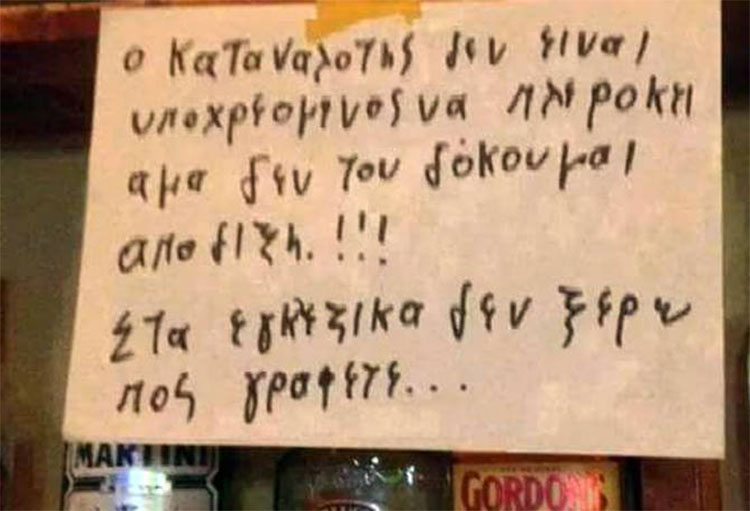 ο καταναλοτης δεν εινα ι
υποχρεομενος να πλι ροκι
αμα δεν του δόκουμαι
αποδιξη.!!!
Στα εγκλεζικα δεν ξερω
πος γραφετε...
MARTINI
GORDON'S